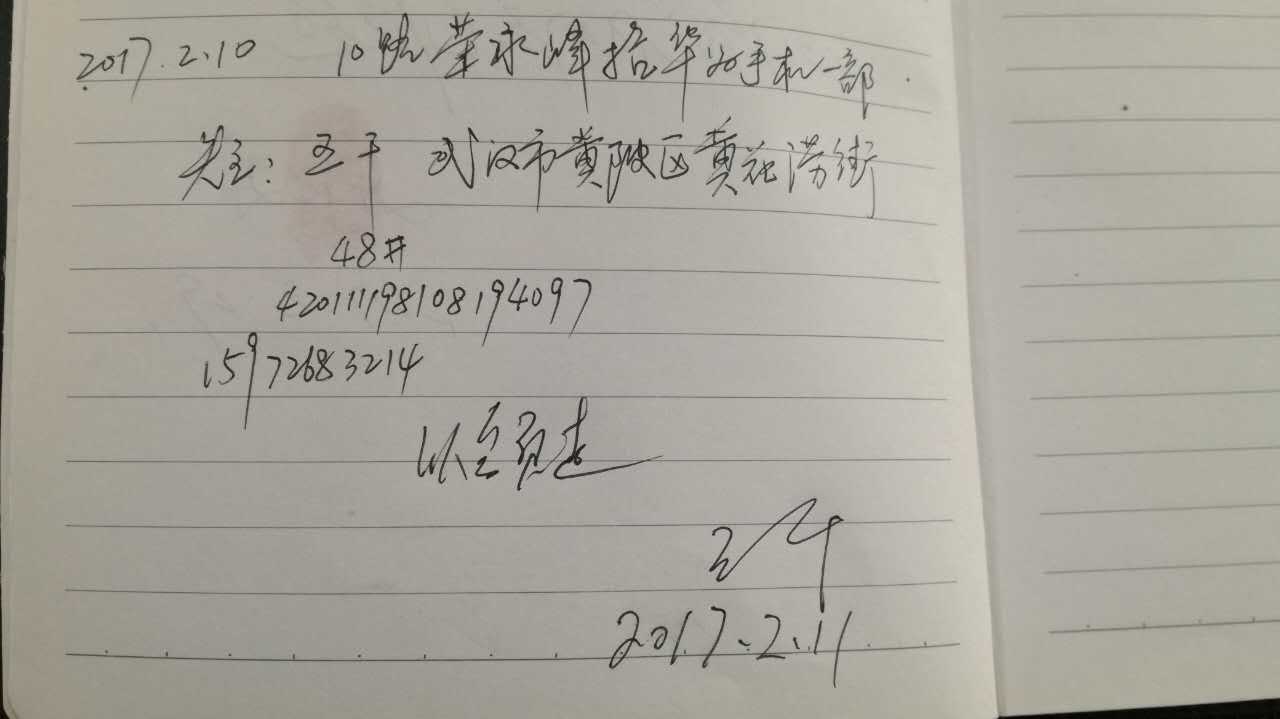 2017.2.10 10路荣永峰拾华为手机一部.
失主: 王干 武汉市黄陂区黄花涝街
48#
420111198108194097
15972683214
以全归还
王干
2017.2.11